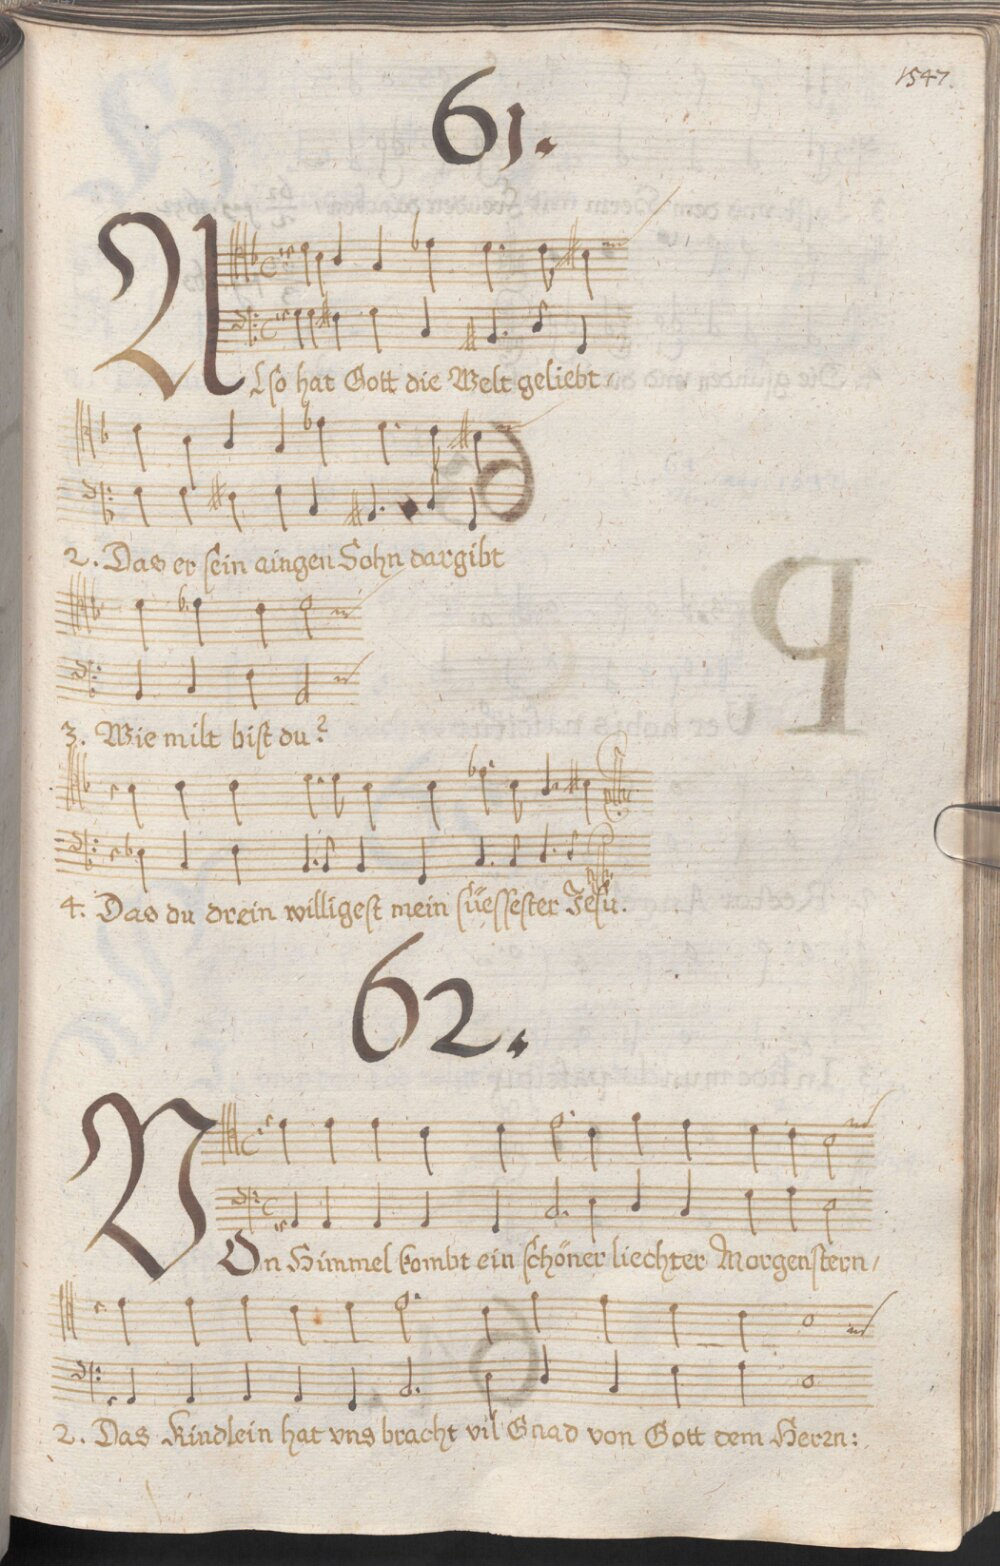 1547.
61.
Also hat Gott die Welt geliebt /
2. Das er sein aingen Sohn dargibt
3. Wie milt bist du?
4. Das du drein willigest mein süessester Jesu.
62.
VOn Himmel kombt ein schöner liechter Morgenstern /
2. Das Kindlein hat vns bracht vil Gnad von Gott dem Herrn: